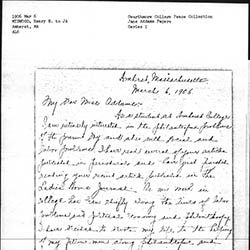 1906 Mar 6
Amherst, MA
ALS
Swarthmore College Peace Collection
Jane Addams Papers
Series 1
Amherst, Massachusetts
March 6, 1906.
My Dear Miss Addams:
As a student at Amherst College
I am intensely interested in the philanthropic problems
of the present day and also with social and
labor problems. I have read several of your articles
published in periodicals and have just finished
reading your recent article published in the
Ladies Home Journal. As my work in
college has been chiefly along the lines of
and political economy and Philanthropy
I have decided to devote my life to the
of my fellow men along philanthropic and